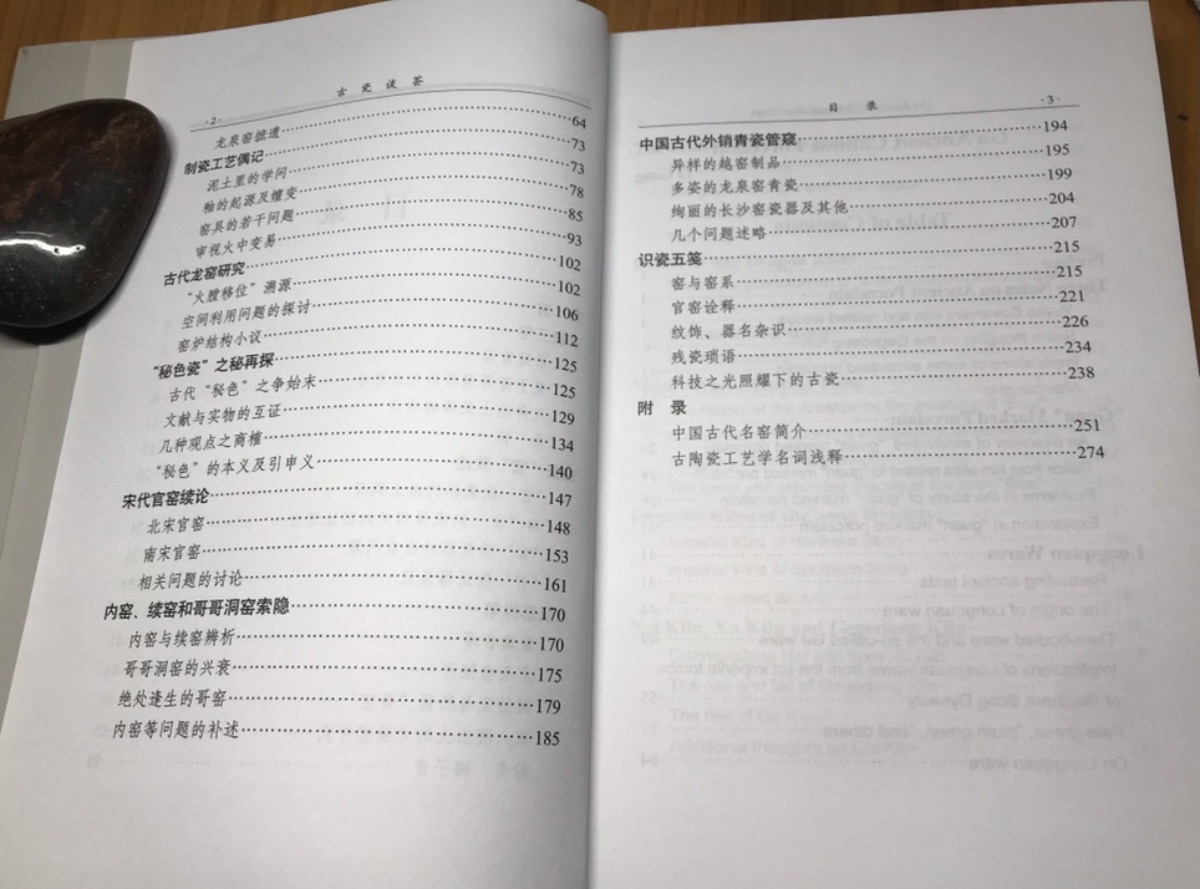 ·2·
古瓷谈荟
龙泉窑摭遗 64
制瓷工艺偶记 73
泥土里的学问 73
釉的起源及嬗变 78
窑具的若干问题 85
审视火中变易 93
古代龙窑研究 102
“火膛移位”溯源 102
空间利用问题的探讨 106
窑炉结构小议 112
“秘色瓷”之秘再探 125
古代“秘色”之争始末 125
文献与实物的互证 129
几种观点之商榷 134
“秘色”的本义及引申义 140
宋代官窑续论 147
北宋官窑 148
南宋官窑 153
相关问题的讨论 161
内窑、续窑和哥哥洞窑索隐 170
内窑与续窑辨析 170
哥哥洞窑的兴衰 175
绝处逢生的哥窑 179
内窑等问题的补述 185
目录
·3·
中国古代外销青瓷管窥 194
异样的越窑制品 195
多姿的龙泉窑青瓷 199
绚丽的长沙窑瓷器及其他 204
几个问题述略 207
识瓷五笺 215
窑与窑系 215
官窑诠释 221
纹饰、器名杂识 226
残瓷琐语 234
科技之光照耀下的古瓷 238
附录
中国古代名窑简介 251
古陶瓷工艺学名词浅释 274